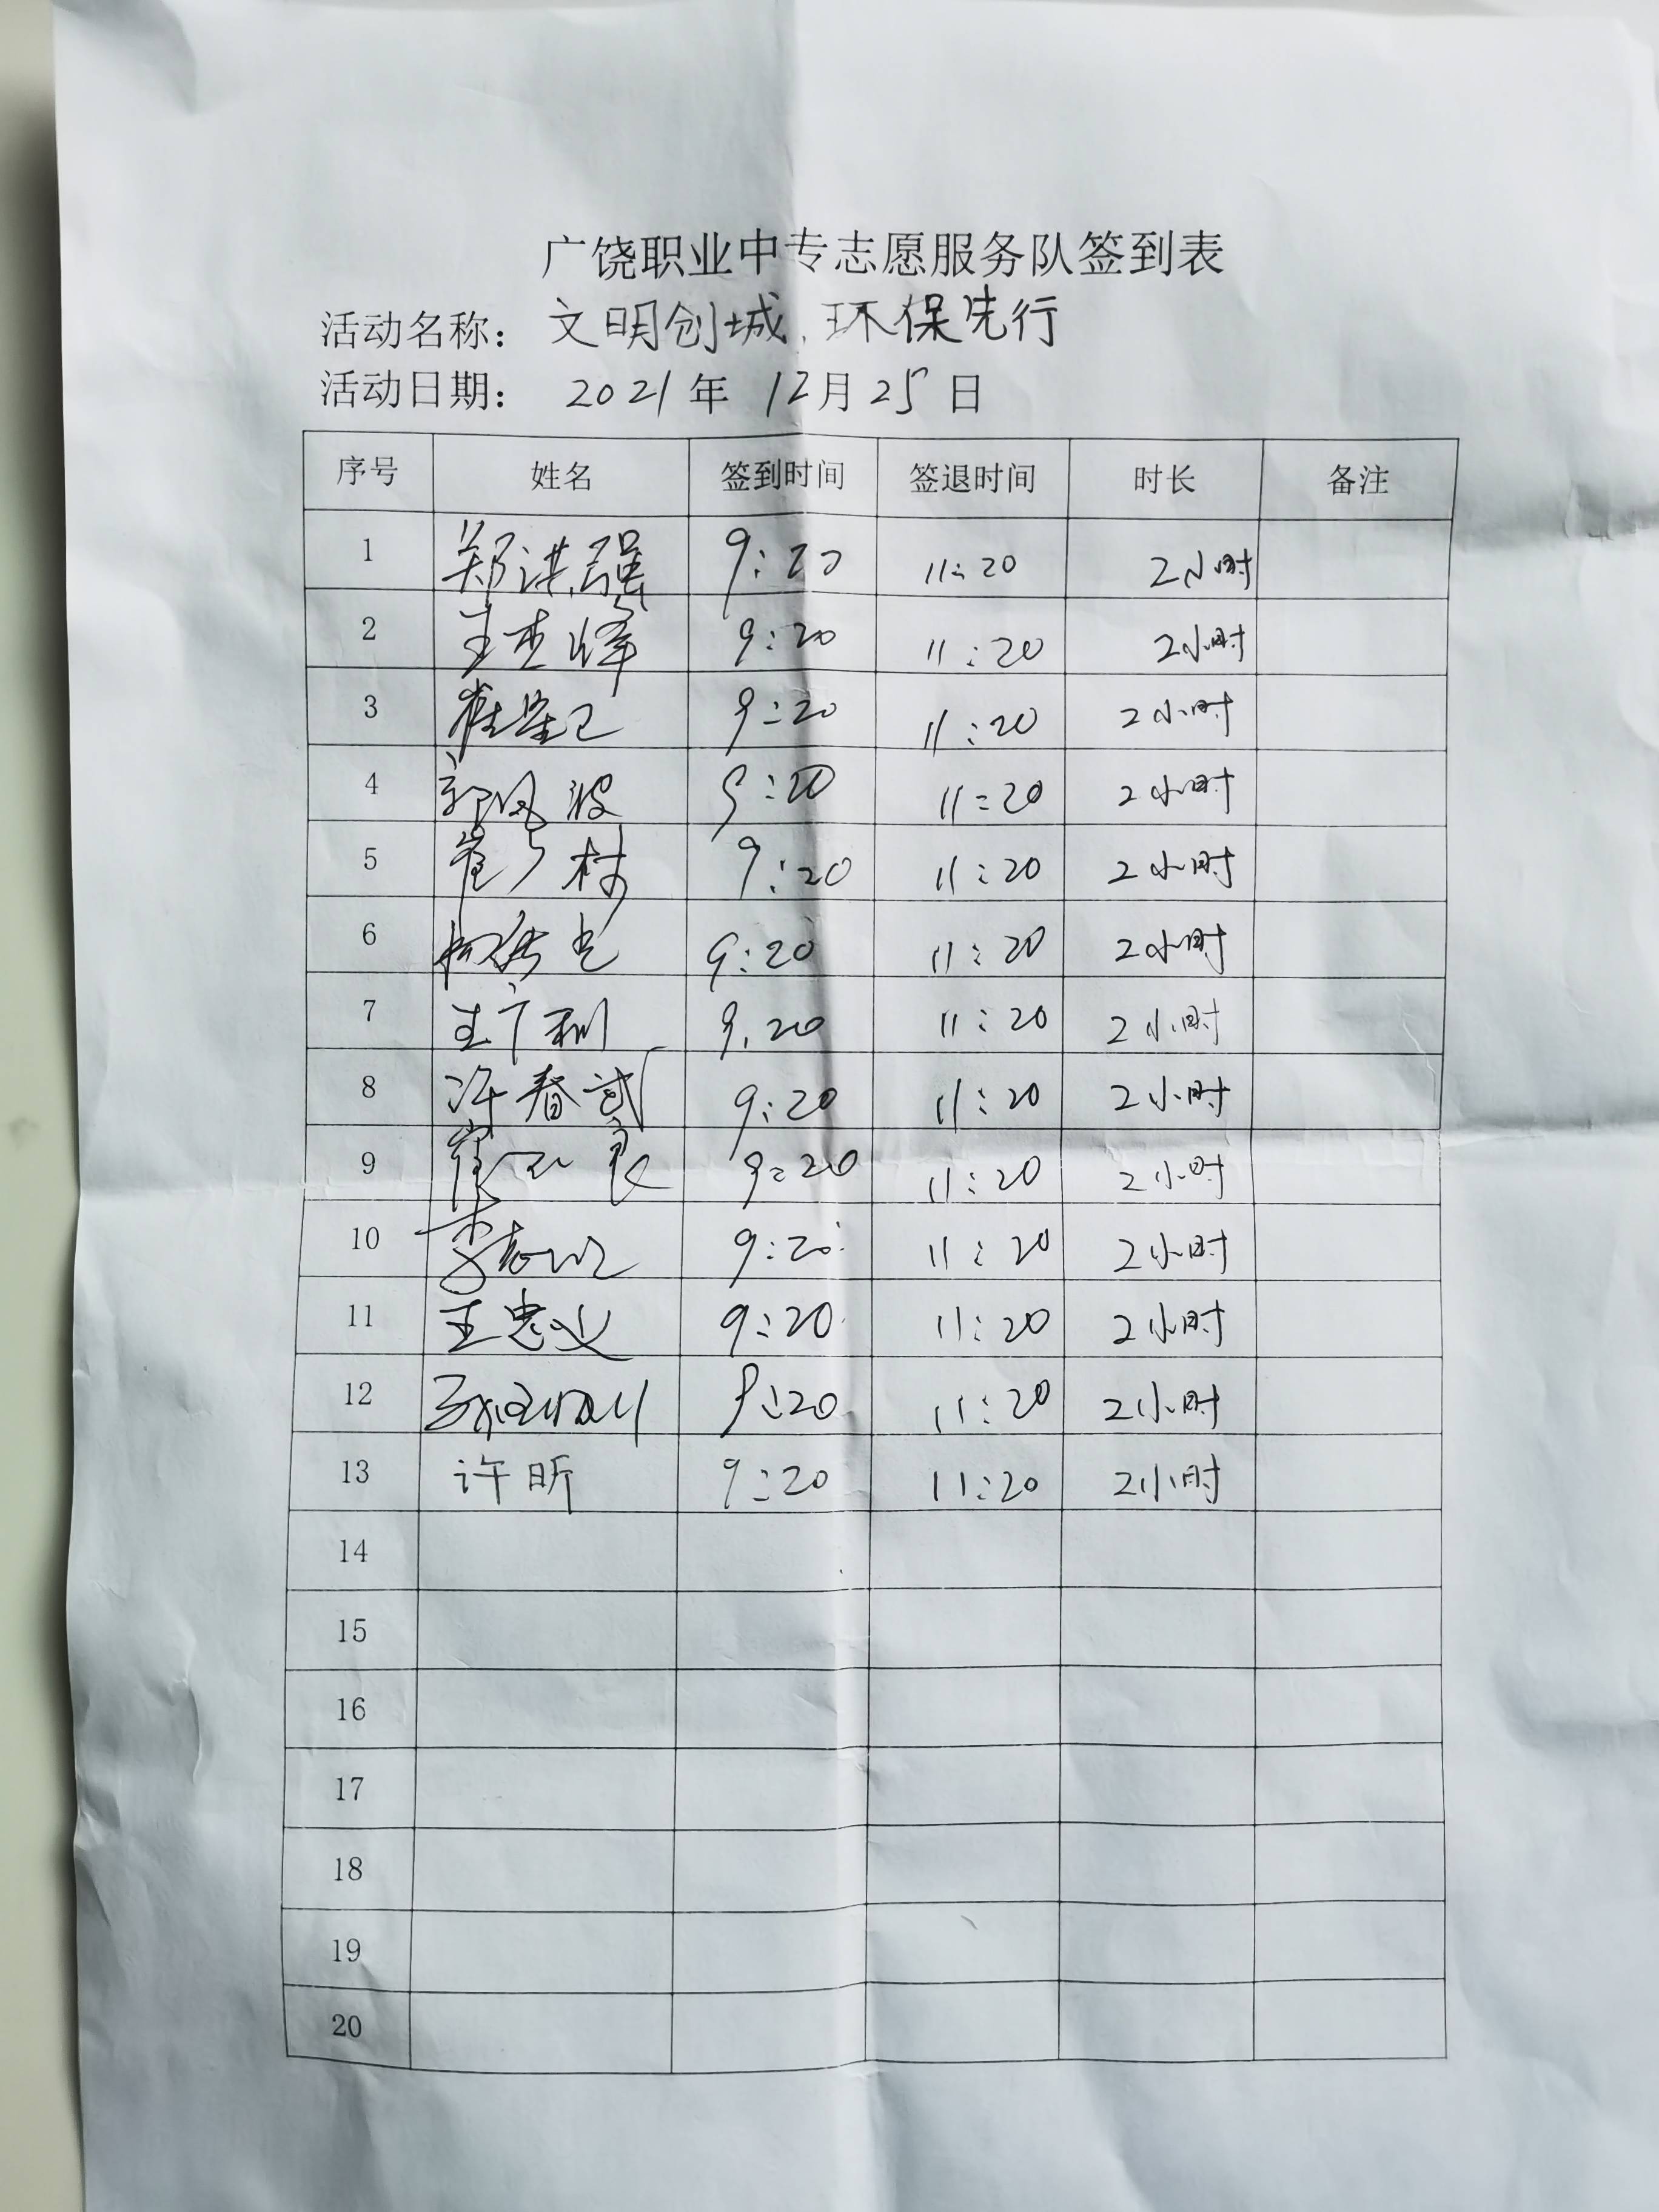 广饶职业中专志愿服务队签到表
活动名称: 文明创城、环保先行
活动日期: 2021年 12月25日
序号 姓名 签到时间 签退时间 时长 备注
1 郑洪强 9:20 11:20 2小时
2 王杰峰 9:20 11:20 2小时
3 9:20 11:20 2小时
4 郭风波 9:20 11:20 2小时
5 9:20 11:20 2小时
6 9:20 11:20 2小时
7 王广利 9.20 11:20 2小时
8 许春武 9:20 11:20 2小时
9 9:20 11:20 2小时
10 9:20 11:20 2小时
11 王忠义 9:20 11:20 2小时
12 9:20 11:20 2小时
13 许昕 9:20 11:20 2小时
14
15
16
17
18
19
20